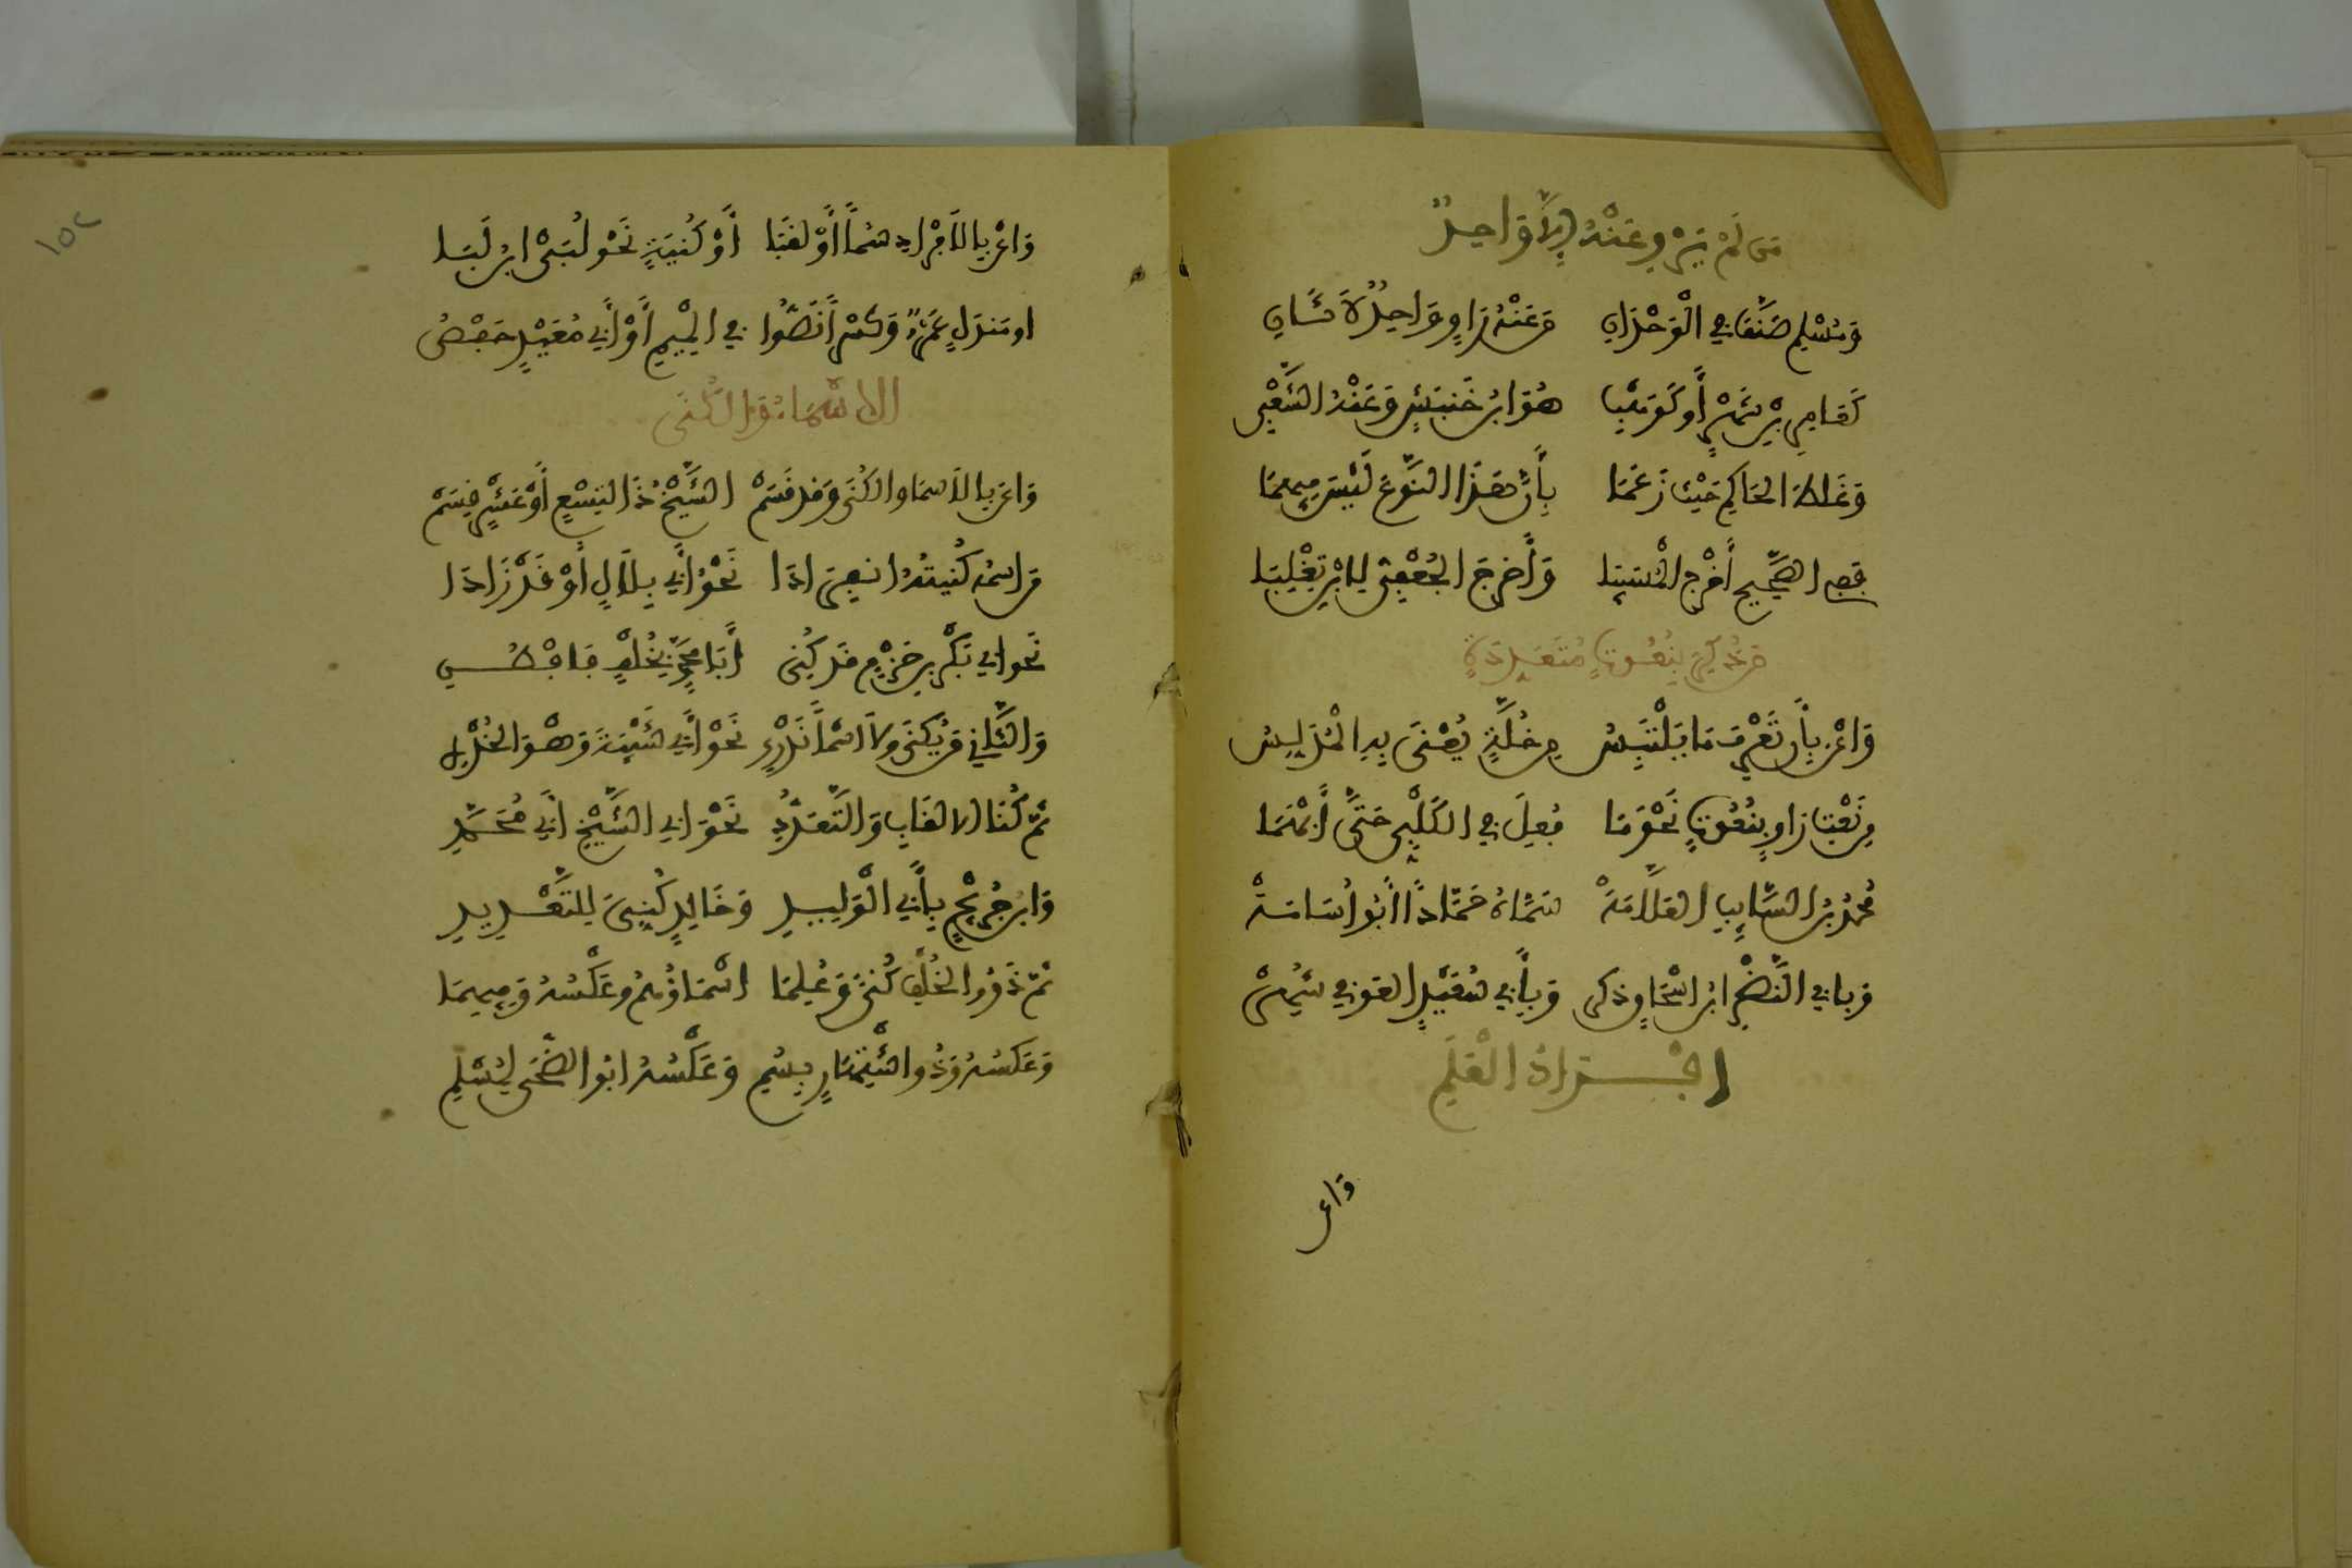 من لم يرو عنه إلا واحد
وَمُسْلِم صَنَّفَ في الْوَحْدَانِ مَنْ عَنْهُ رَاوٍ وَاحِدٌ لَا ثَانِ
كَعَامِرِ بْنِ شَهْرٍ أو كَوَهْبِ هُوَ ابْنُ خَنْبَشٍ وَعَنْهُ الشَّعْبِي
وَغُلِّطَ الحَاكِمُ حَيْثُ زَعَمَا بِأَنَّ هَذَا النَّوْعَ لَيْسَ فِيهِمَا
فَفِي الصَّحِيحِ أَخْرَجَا الْمُسَيَّبَا وَأَخْرَجَ الجُعْفِيُّ لِابْنِ تَغْلِبَا
مَنْ ذُكِرَ بِنُعُوتٍ مُتَعَدِّدَةٍ
وَاعْنِ بِأَنْ تَعْرِفَ مَا يَلْتَبِسُ مِنْ خُلَّةٍ يُعْنَى بِهِ الْمُدَلِّسُ
مِنْ نَعْتِ رَاوٍ بِنُعُوتٍ نَحْوَ مَا فُعِلَ في الكَلْبِيِّ حَتَّى أُبْهِمَا
مُحَمَّدُ بْنُ السَّائِبِ العَلَّامَهْ سَمَّاهُ حَمَّادًا أَبُو أُسَامَهْ
وَبِأبي النَّضْرِ ابْنُ إسْحَاقٍ ذكر وَبِأَبِي سَعِيدٍ العوفي شُهِرْ
أفْرَادُ الْعَلَمِ
وَاعن
وَاعْنِ بِالْأَفْرَادِ سُمًا أَوْ لَقَبَا أَوْ كُنْيَةٍ نَحْوَ لُبَيِّ ابْنِ لَبَا
او مَنْدَلٍ عَمْرٌو وَكَسْرًا نَصُّوا في الْمِيمِ أَوْ أَبِي مُعَيْدٍ حَفْصُ
الأسْمَاءُ وَالْكُنَى
وَاعن بِالْأسما والكُنَى وَقد قَسَمْ الشَّيْخُ ذَا لِتِسْعٍ أَوْ عَشْرٍ قِسَمْ
مَنِ اسْمُهُ كُنْيَتُهُ انْفِرَادَا نَحْوُ أَبِي بِلَالٍ أَوْ قَدْ زَادَا
نَحو ابي بَكْرِ بنِ حَزْمٍ قد كُنِي أَبَا مُحَمَّدٍ بِخُلْفٍ فَافْطُنِ
وَالثَّانِي مَنْ يُكْنَى وَلَا اسْمًا نَدْرِي نَحْوُ أَبِي شَيْبَةَ وَهْوَ الخُدْرِي
ثُمَّ كُنَا الالقَابِ وَالتَّعَدُّدِ نَحْوُ ابي الشَّيْخِ أبي مُحَمَّدِ
وَابْنُ جُرَيْجٍ بِأَبِي الْوَلِيدِ وَخَالِدٍ كُنِّيَ لِلتَّعْدِيدِ
ثُمَّ ذَوُو الخُلْفِ كُنًى وَعُلِمَا اسْمَاؤُهُمْ وَعَكْسُهُ وَفِيهِمَا
وَعَكْسُهُ وَذُو اشْتِهَارٍ بِسُمِ وَعَكْسُهُ ابُو الضُّحَى لِمُسْلِمِ
١٥٢